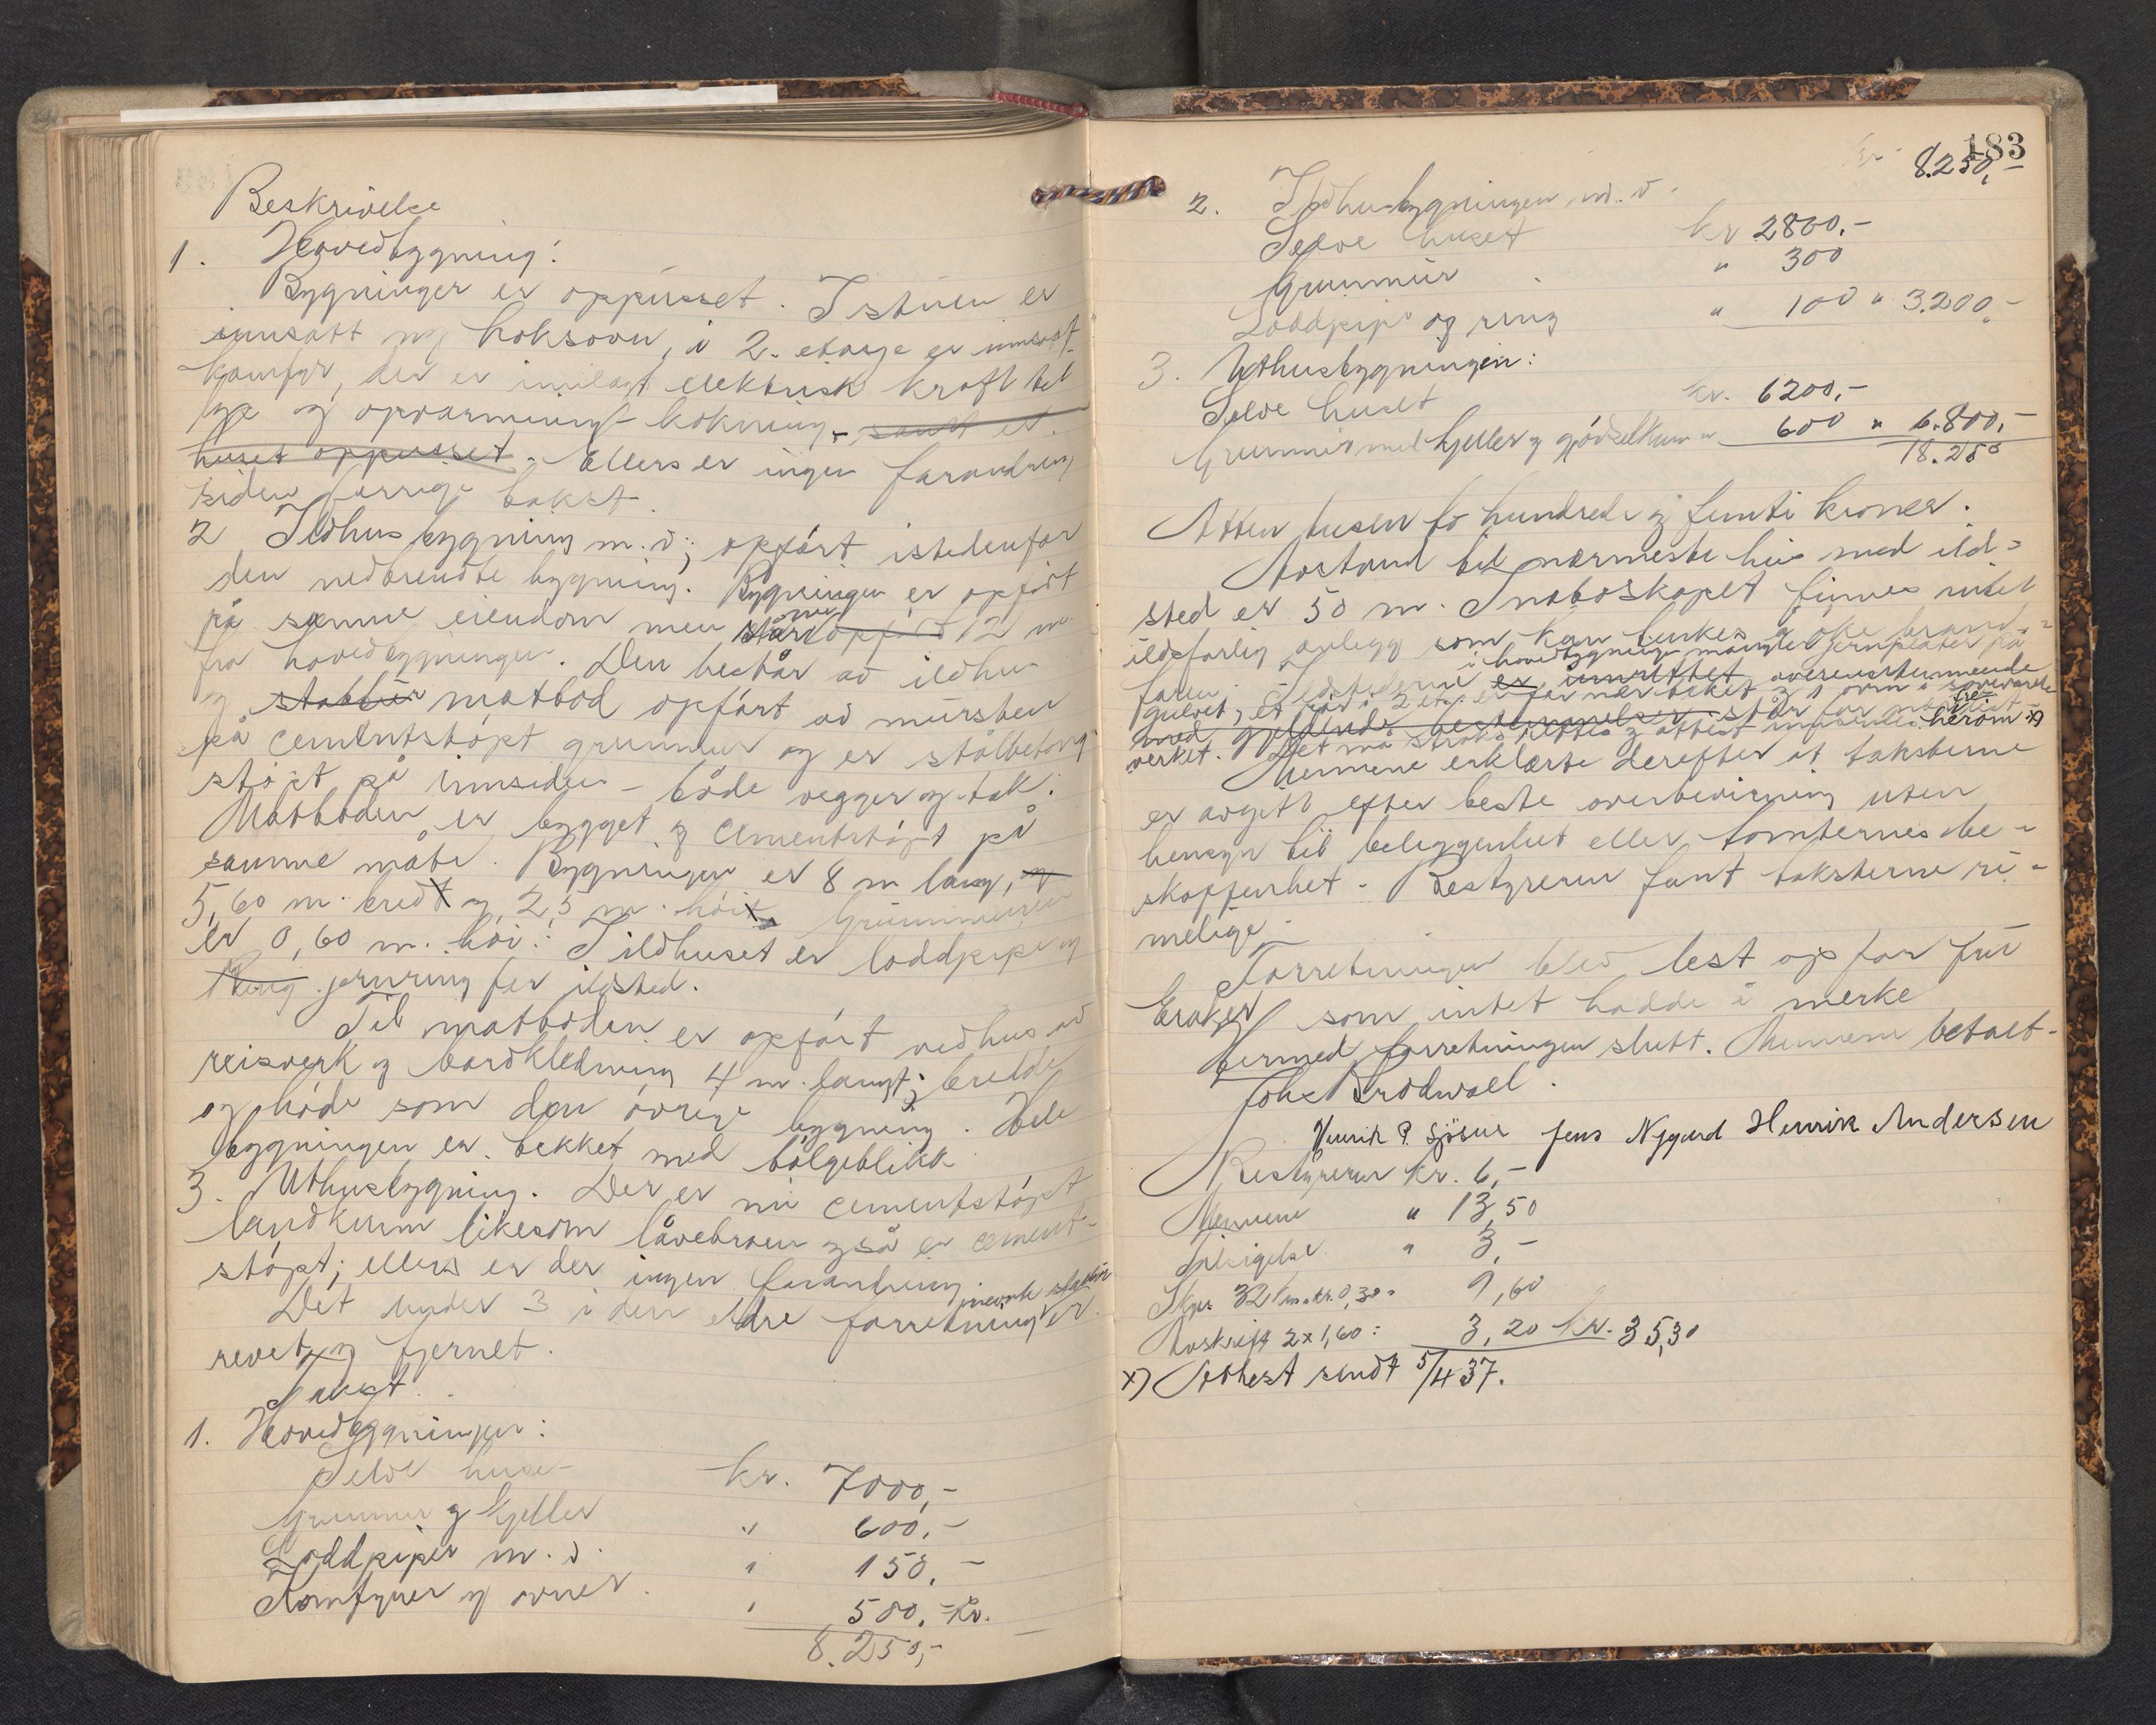 Beskrivelse
1. Hovedbygning:
Bygninger er oppusset. I stuen er
innsatt ny koksovn, i 2. etasje er innsatt
komfyr, der er innlagt elektrisk kraft til
lys og opvarming koking, samt er
huset oppusset. Ellers er ingen forandring
siden forrige takst.
2 Ildhusbygning m.v.; opført istedenfor
den nedbrendte bygning. Bygningen er opført
på samme eiendom men står nu opført 12 m.
fra hovedbygningen. Den består av ildhus
og stabbur matbod opført av mursten
på cementstøpt grunnmur og er stålbetong
støpt på innsiden - både vegger og tak.
Matboden er bygget og cementstøpt på
samme måte. Bygningen er 8 m lang, og
5,60 m. bredt og 2,5 m. høit. Grunnmuren
er 0,60 m. høi. I ildhuset er loddpipe og
Ring jernring for ildsted.
Til matboden er opført vedhus av
reisverk og bordkledning 4 m. langt; bredde
og høide som den øvrige bygning. Hele
bygningen er tekket med bølgeblikk
3. Uthusbygning. Der er nu cementstøpt
landkum likesom låvebroen også er cement-
støpt; ellers er der ingen forandring.
Det under 3 i den eldre forretning nevnte stabbur er
revet og fjernet.
Takst.
1. Hovedbygningen:
Selve huset kr. 7000,-
Grunnmur og kjeller " 600,-
Loddpiper m.v. " 150,-
Komfyrer og ovner " 500,- Kr.
8.250,-
183
kr. 8.250,-
2. Ildhusbygningen m.v.
Selve huset kr 2800.-
Grunnmur " 300
Loddpipe og ring " 100 " 3.200,-
3. Uthusbygningen:
Selve huset kr. 6200,-
Grunnmur med kjeller og gjødselkum " 600 " 6.800,-
18.250
Atten tusen to hundrede og femti kroner.
Avstand til nærmeste hus med ild-
sted er 50 m. I naboskapet finnes intet
ildsfarlig anlegg som kan tenkes å øke brand-
faren. Ildstedene er innrettet overensstemmende
i hovedbygningen mangler jernplater på
gulvet, et rør i 2 etg. er for nær taket og 1 ovn i
med gjeldende bestemmelser står for nær tre-
verket. Det må straks rettes og attest innsendes herom x)
Mennene erklærte derefter at taksterne
er avgitt efter beste overbevisning uten
hensyn til beliggenhet eller tomternes be-
skaffenhet. Bestyreren fant taksterne ri-
melige.
Forretningen blev lest op for fru
Eraker som intet hadde å merke
Hermed forretningen slutt. Mennene betalt.
Joh. Brodwall.
Henrik P. Sjösur Jens Nygard Henrik Andersen
Bestyreren kr. 6,-
Mennene " 13,50
Tilsigelse " 3,-
Skyss 32 km a kr. 0,30 = 9,60
Avskrift 2 x 1,60 = 3,20 kr. 35,30
x) Attest sendt 5/4 37.